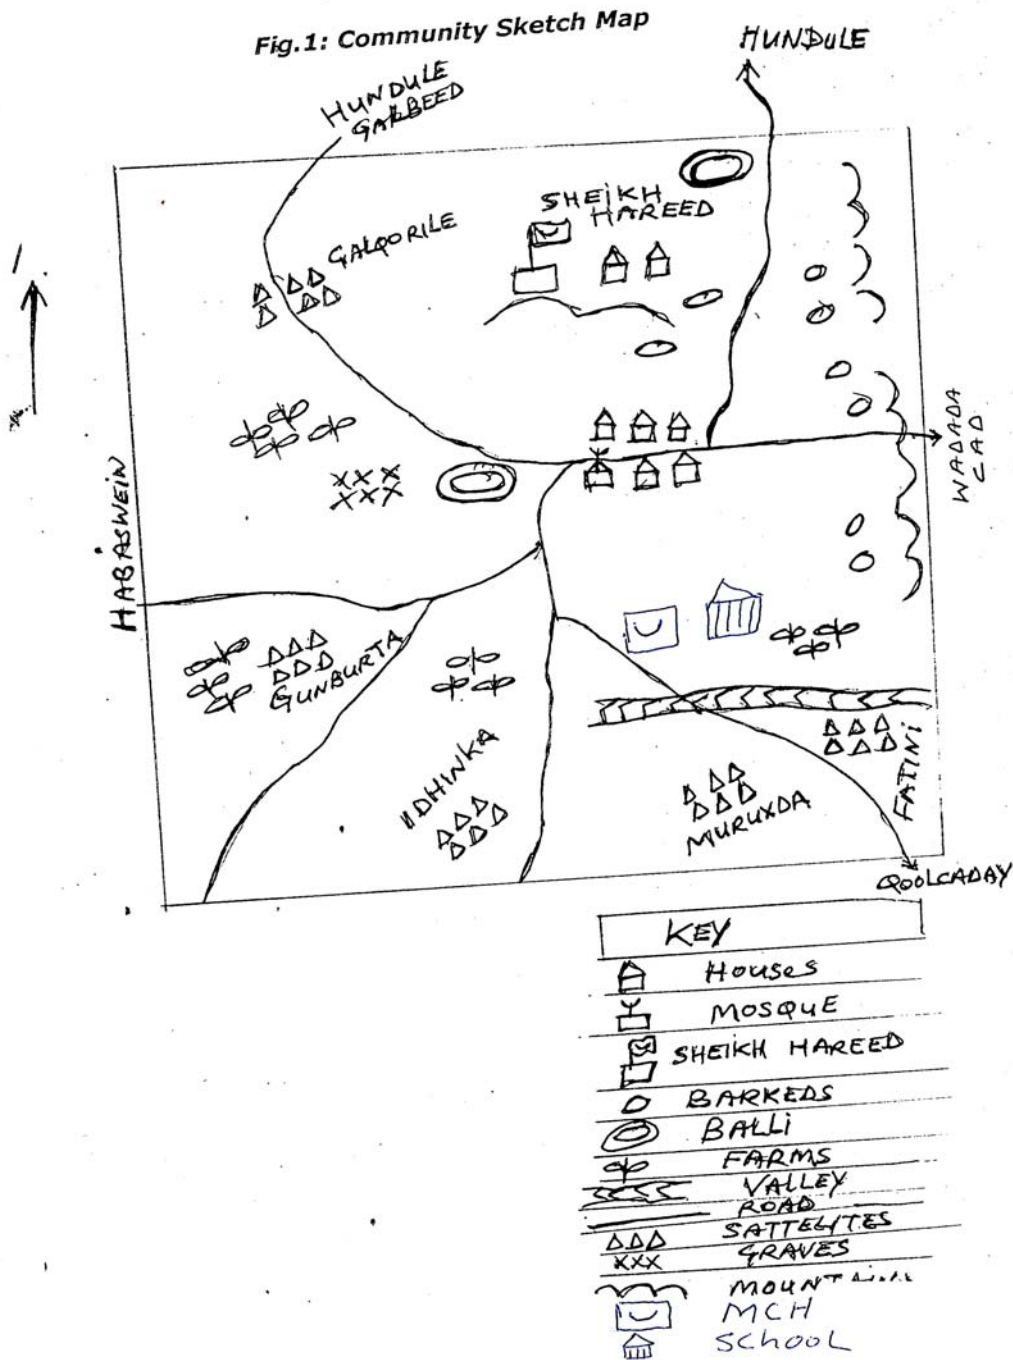 Fig.1: Community Sketch Map
HUNDULE
HUNDULE
GARBEED
SHEIKH
HAREED
GALQORILE
WADADA
CAD
HABASWEIN
GUNBURTA
IIDHINKA
MURUXDA
FATINI
QOOLCADAY
KEY
HOUSES
MOSQUE
SHEIKH HAREED
BARKEDS
BALLI
FARMS
VALLEY
ROAD
SATTELITES
GRAVES
XXX
MCH
SCHOOL